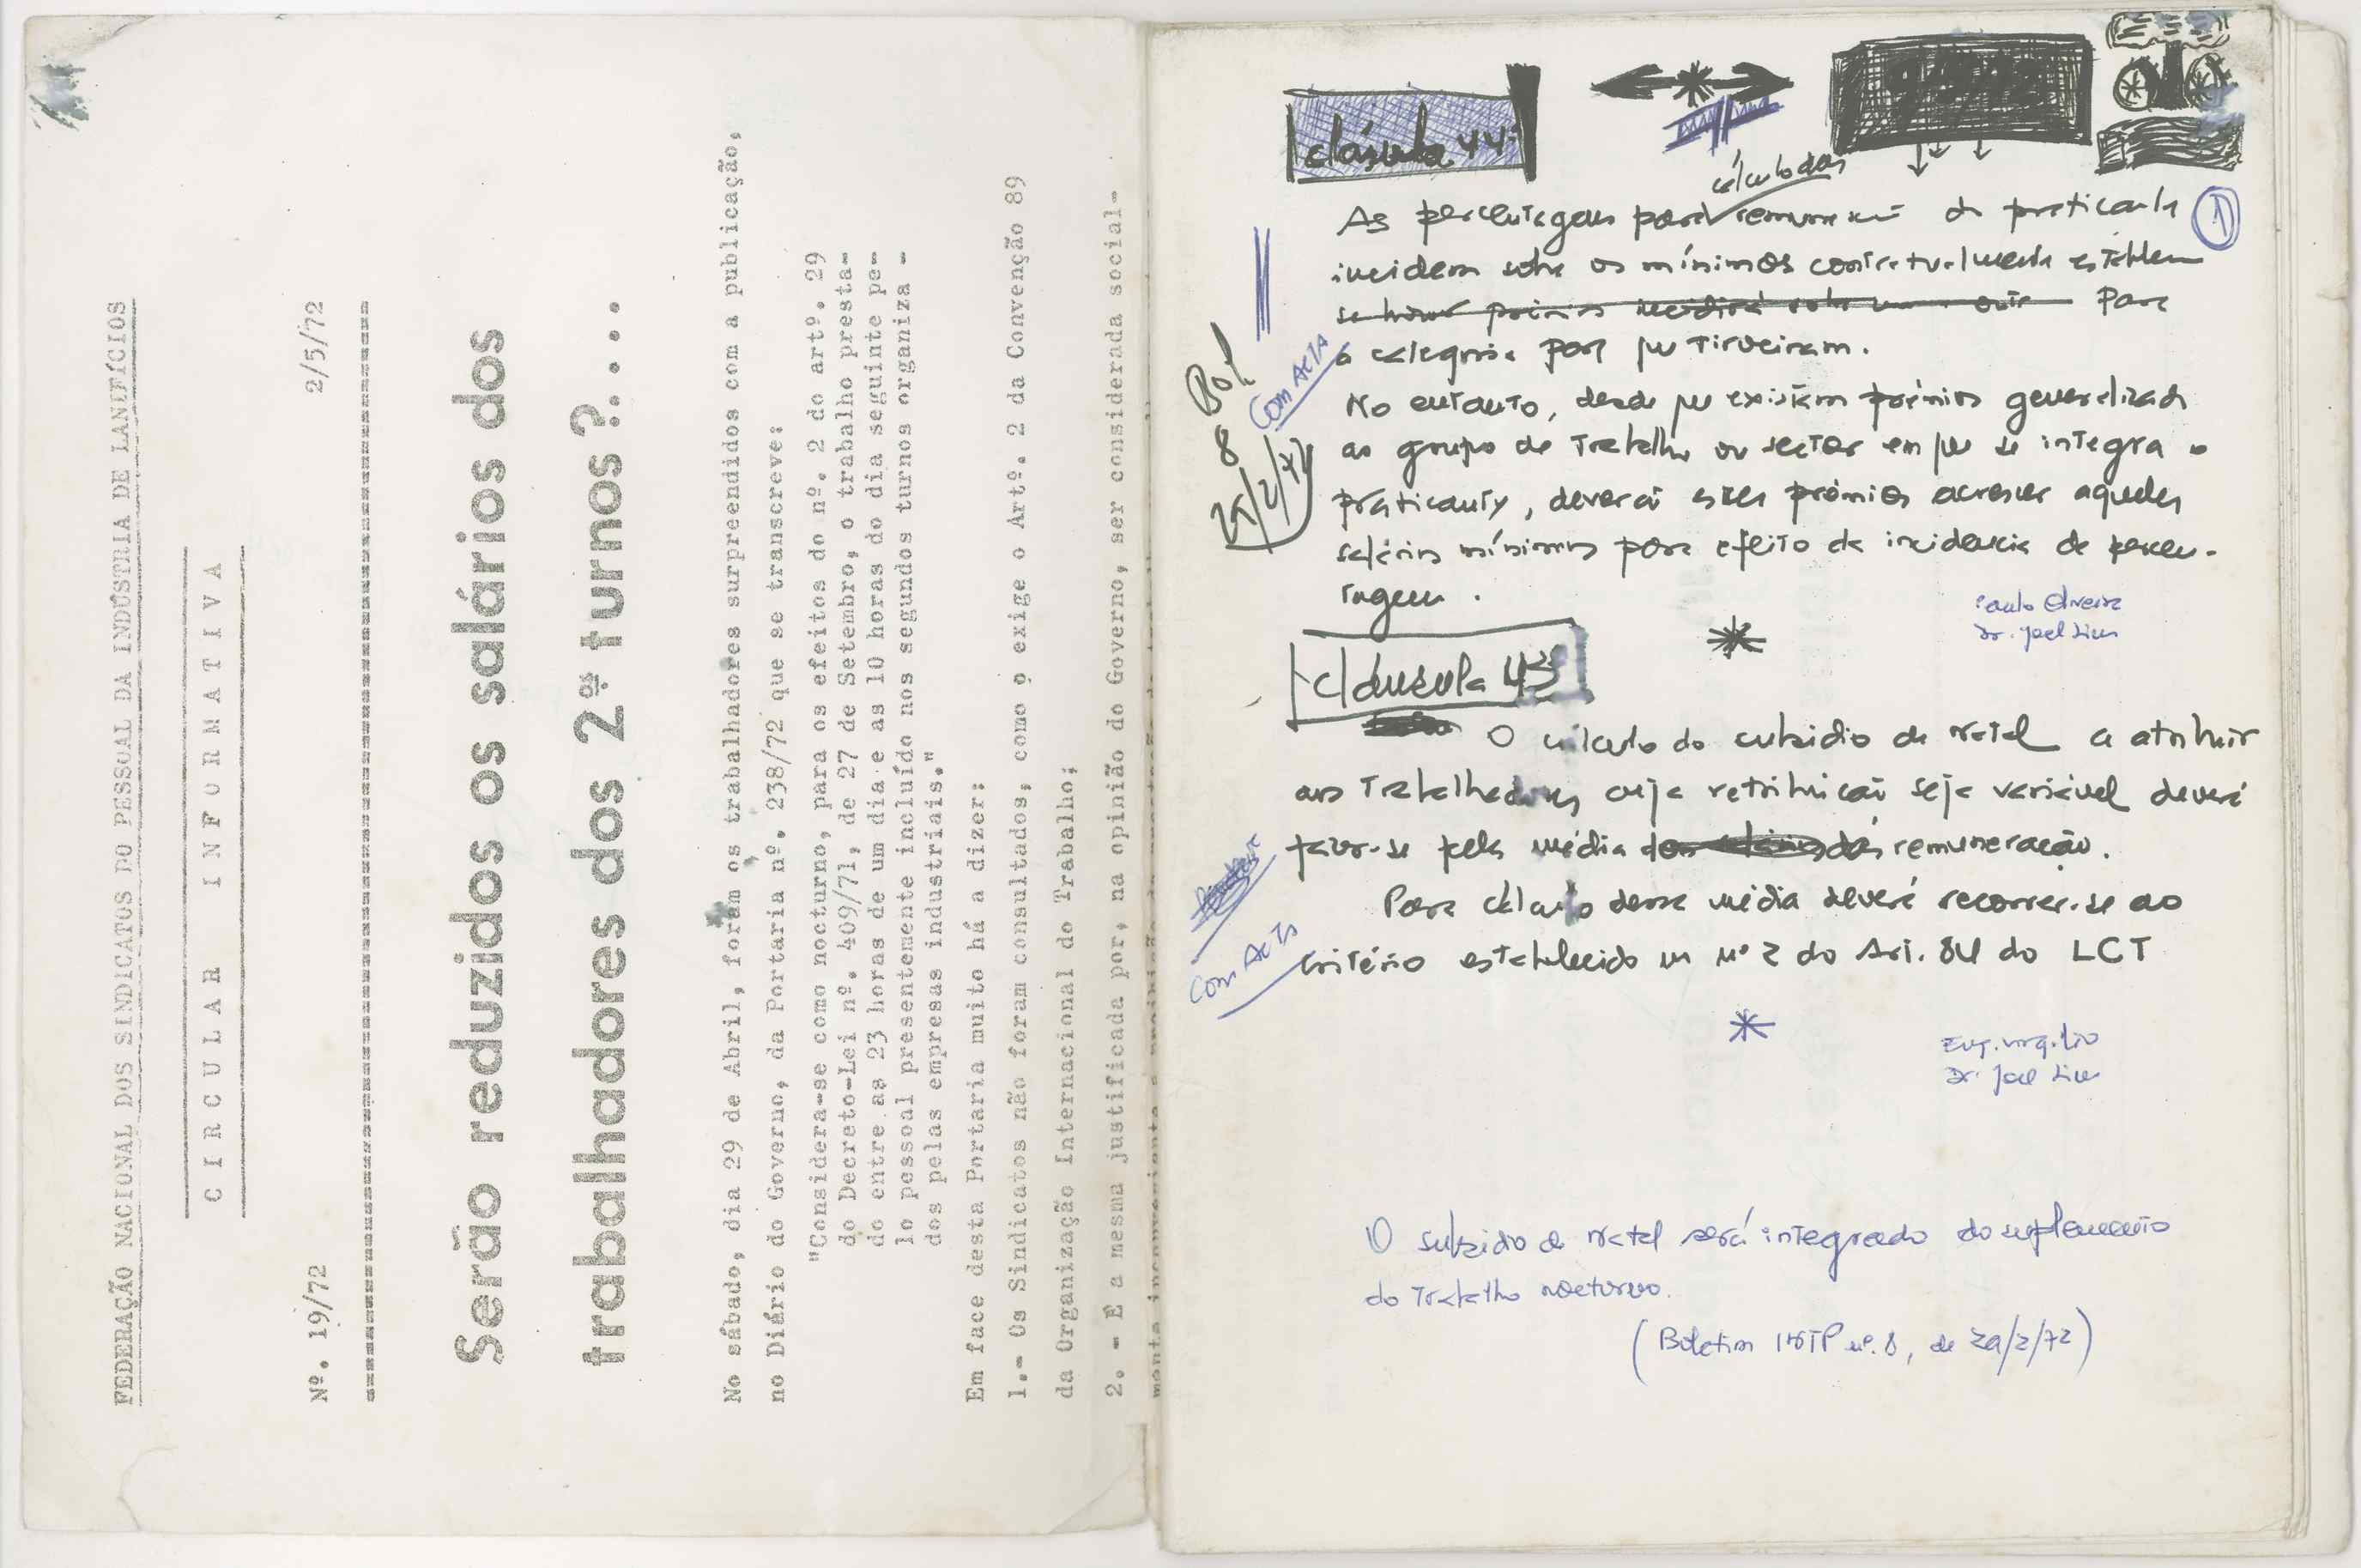 FEDERAÇÃO NACIONAL DOS SINDICATOS DO PESSOAL DA INDÚSTRIA DE LANIFÍCIOS
CIRCULAR INFORMATIVA
Nº. 19/72 2/5/72
Serão reduzidos os salários dos
trabalhadores dos 2ºs turnos ?....
No sábado, dia 29 de Abril, foram os trabalhadores surpreendidos com a publicação,
no Diário do Governo, da Portaria nº. 238/72 que se transcreve:
"Considera-se como nocturno, para os efeitos do nº. 2 do artº. 29
do Decreto-Lei nº. 409/71, de 27 de Setembro, o trabalho presta-
do entre as 23 horas de um dia e as 10 horas do dia seguinte pe-
lo pessoal presentemente incluído nos segundos turnos organiza -
dos pelas empresas industriais."
Em face desta Portaria muito há a dizer:
1.- Os Sindicatos não foram consultados, como o exige o Artº. 2 da Convenção 89
da Organização Internacional do Trabalho;
2. - E a mesma justificada por, na opinião do Governo, ser considerada social-
clásula 44ª
calculadas
As percentagens para remuneração do praticante
incidem sobre os mínimos contratualmente estabelec
para
a categoria por que tirveiram.
No entanto, desde que existam prémios generalizados
ao grupo de Trabalho ou sector em que se integra o
praticante, deverá estes prémios acrescer aqueles
salários mínimos para efeito da incidencia de percen-
tagem.
1
Bol
8
29/2/72
Com ACTA
Paulo Oliveira
Dr. Joel Lima
Cláusula 43ª
O cálculo do subsidio de Natal a atribuir
aos Trabalhadores cuja retribuição seja variável deverá
fazer-se pela média das remuneração.
Para cálculo dessa média deverá recorrer-se ao
critério estabelecido no nº 2 do Art. 84 do LCT
Com ACTA
Eng. Virgílio
Dr. Joel Lima
O subsidio de Natal será integrado do suplemento
do Trabalho nocturno.
(Boletim INTP nº. 8, de 29/2/72)